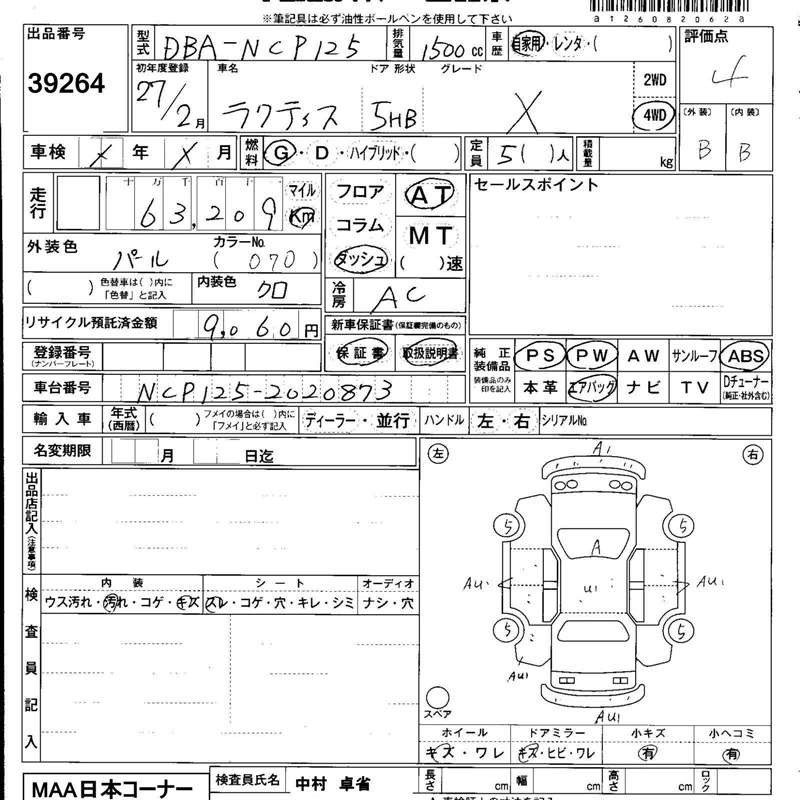 ※筆記具は必ず油性ボールペンを使用して下さい
a12608206 2a
出品番号
39264
型式 DBA-NCP125 排気量 1500cc 車歴 自家用・レンタ・( )
評価点
4
初年度登録 車名 ドア 形状 グレード
27/2月 ラクティス 5HB X
2WD
4WD
(外装) (内装)
B B
車検 X年 X月 燃料 G・D・ハイブリッド・( ) 定員 5( )人 積載量 kg
走行 十万千百十 マイル
63,209 Km
フロア
コラム
ダッシュ
AT
MT
( )速
セールスポイント
外装色 パール カラーNo.
( 070 )
( ) 色替車は( )内に「色替」と記入 内装色 クロ
冷房 AC
リサイクル預託済金額 9,060円
新車保証書(保証書完備のもの)
保証書 取扱説明書
登録番号
(ナンバープレート)
純正装備品
装備品のみ印を記入
PS PW AW サンルーフ ABS
本革 エアバッグ ナビ TV Dチューナー(純正・社外含む)
車台番号 NCP125-2020873
輸入車 年式(西暦) ( ) フメイの場合は( )内に「フメイ」と必ず記入 ディーラー・並行 ハンドル 左・右 シリアルNo.
名変期限 月 日迄
出品店記入(注意事項)
左 右
A1
5 5
A
AU1 U1 AU1
5 5
AU1
AU1
スペア
検査員記入
内装 シート オーディオ
ウス汚れ・汚れ・コゲ・キズ スレ・コゲ・穴・キレ・シミ ナシ・穴
ホイール ドアミラー 小キズ 小ヘコミ
キズ・ワレ キズ・ヒビ・ワレ 有 有
MAA日本コーナー
検査員氏名 中村 卓省
長さ cm 幅 cm 高さ cm ロック